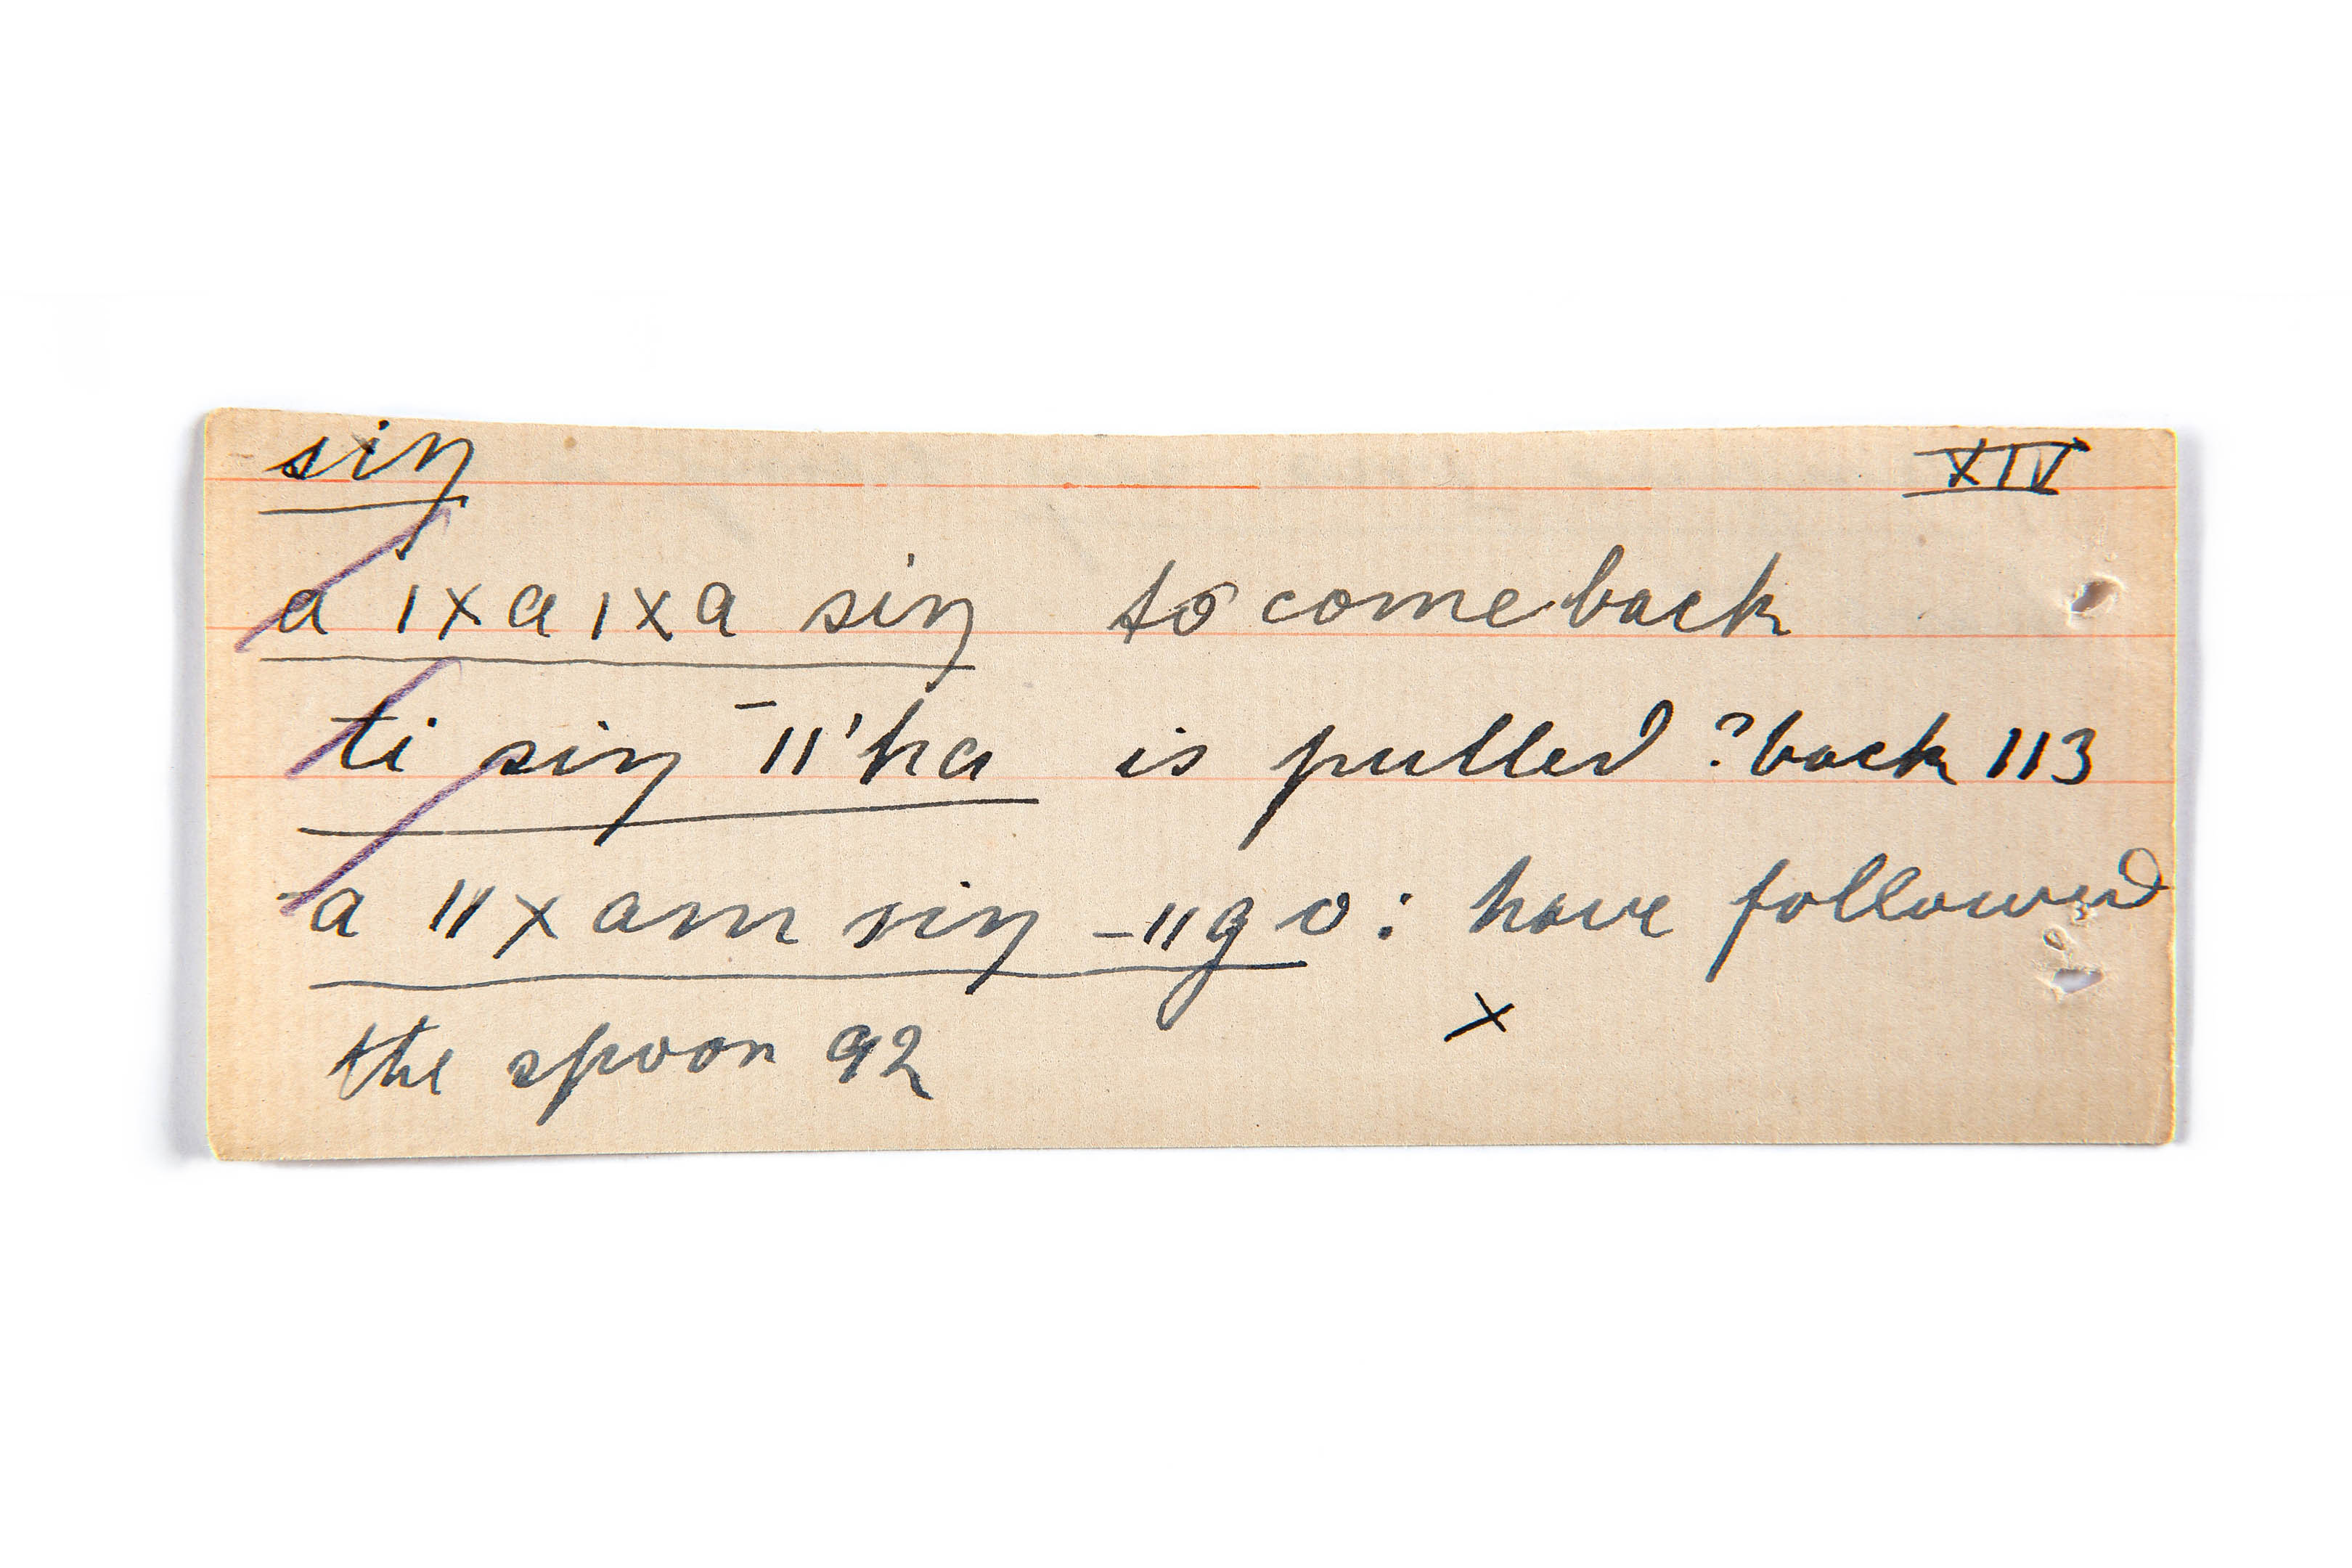 siŋ XIV
a ǀxaǀxa siŋ to come back
ti siŋ ¯ǁ'ha is pulled ?back 113
a ǁxam siŋ _ǁgo: have followed
×
the spoon 92